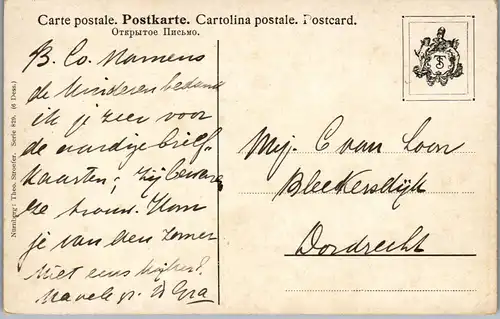 Carte postale. Postkarte. Cartolina postale. Postcard.
Открытое Письмо.
TS
Nürnberg: Theo. Stroefer. Serie 829. (6 Dess.)
B. Co. Namens
de kinderen bedank
ik je zeer voor
de aardige brief-
kaarten; zij bewaren
ze trouw. Kom
je van den zomer
niet eens kijken?
Mej. C van Loon
Bleekersdijk
Dordrecht